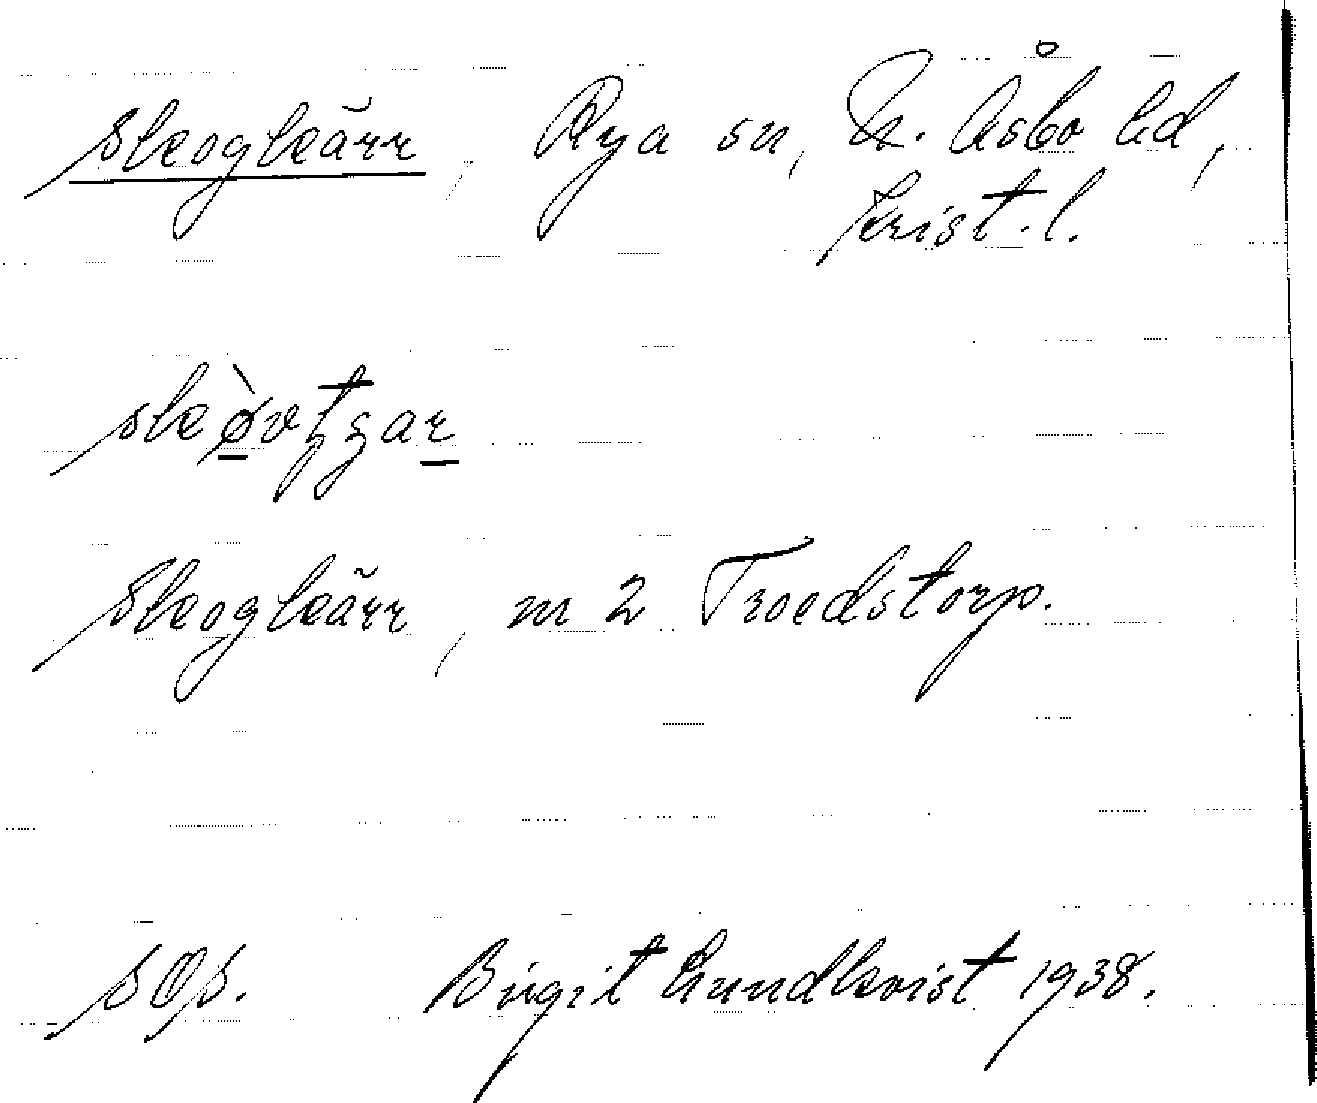 Skogkärr, Rya sn, N. Åsbo hd,
Krist. l.
Skogkärr, nr 2 Troedstorp.
sOp. Birgit Lundkvist 1938.